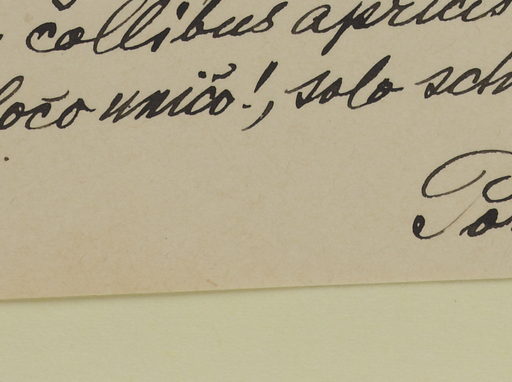 čollibus apricis
ločo uničo!, solo sch
Por